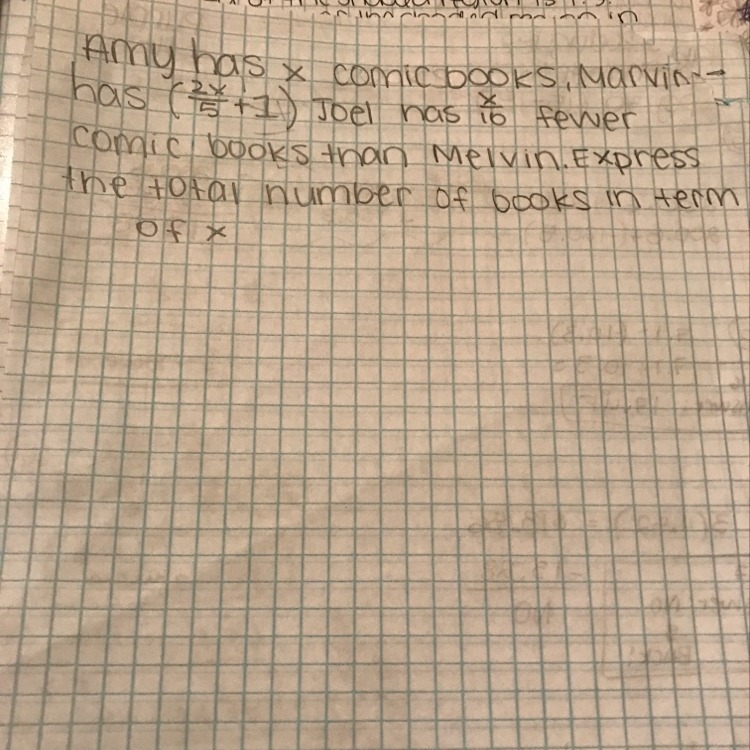 Amy has x comic books, Marvin
has (2x/5 + 1) Joel has x/10 fewer
comic books than Melvin. Express
the total number of books in term
of x